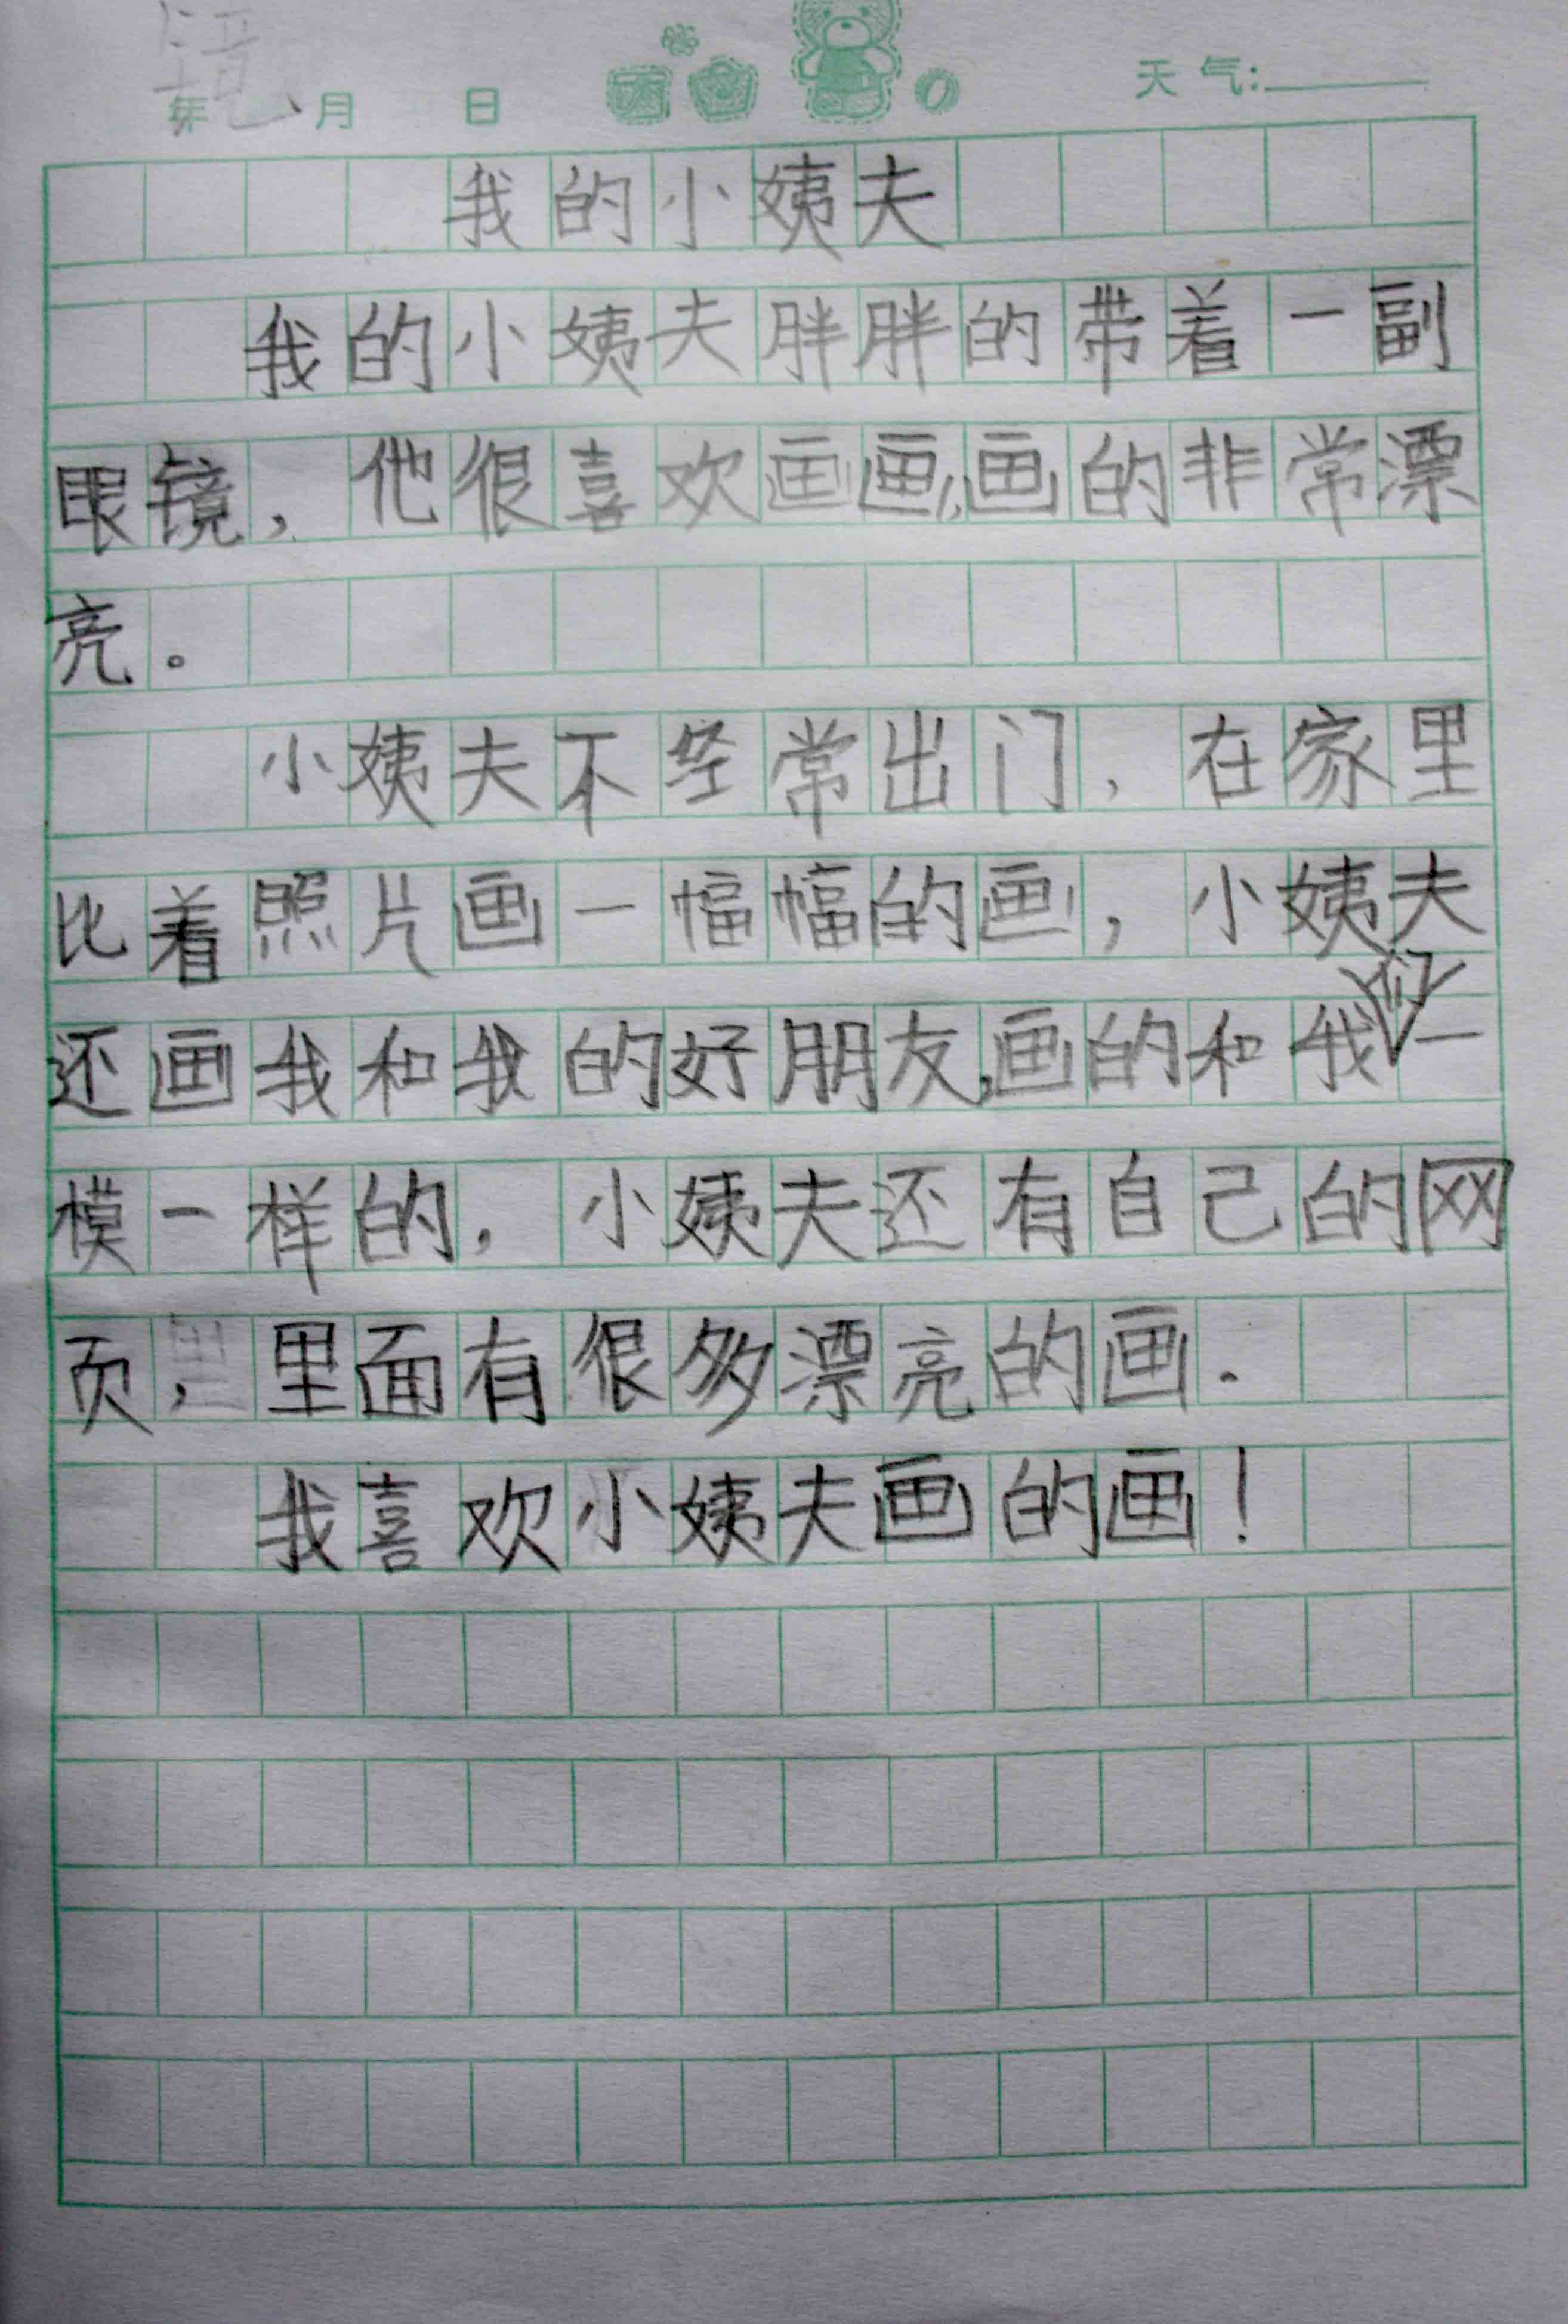 镜
年 月 日 天气:
我的小姨夫
我的小姨夫胖胖的带着一副
眼镜，他很喜欢画画，画的非常漂
亮。
小姨夫不经常出门，在家里
比着照片画一幅幅的画，小姨夫
还画我和我的好朋友，画的和我们一
模一样的，小姨夫还有自己的网
页，里面有很多漂亮的画.
我喜欢小姨夫画的画！